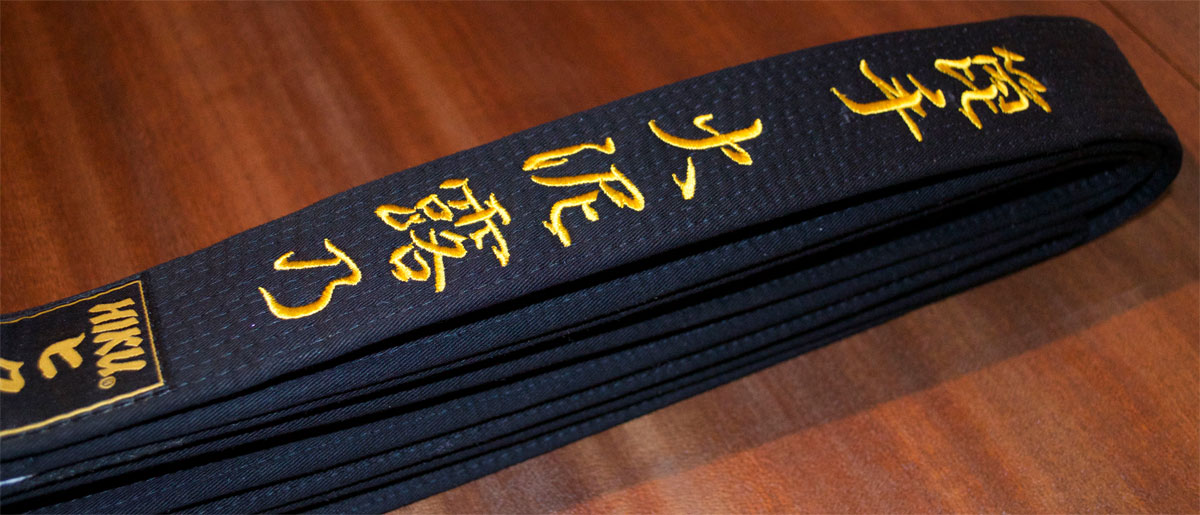 空手 火泥露乃
HIKU®
ヒク